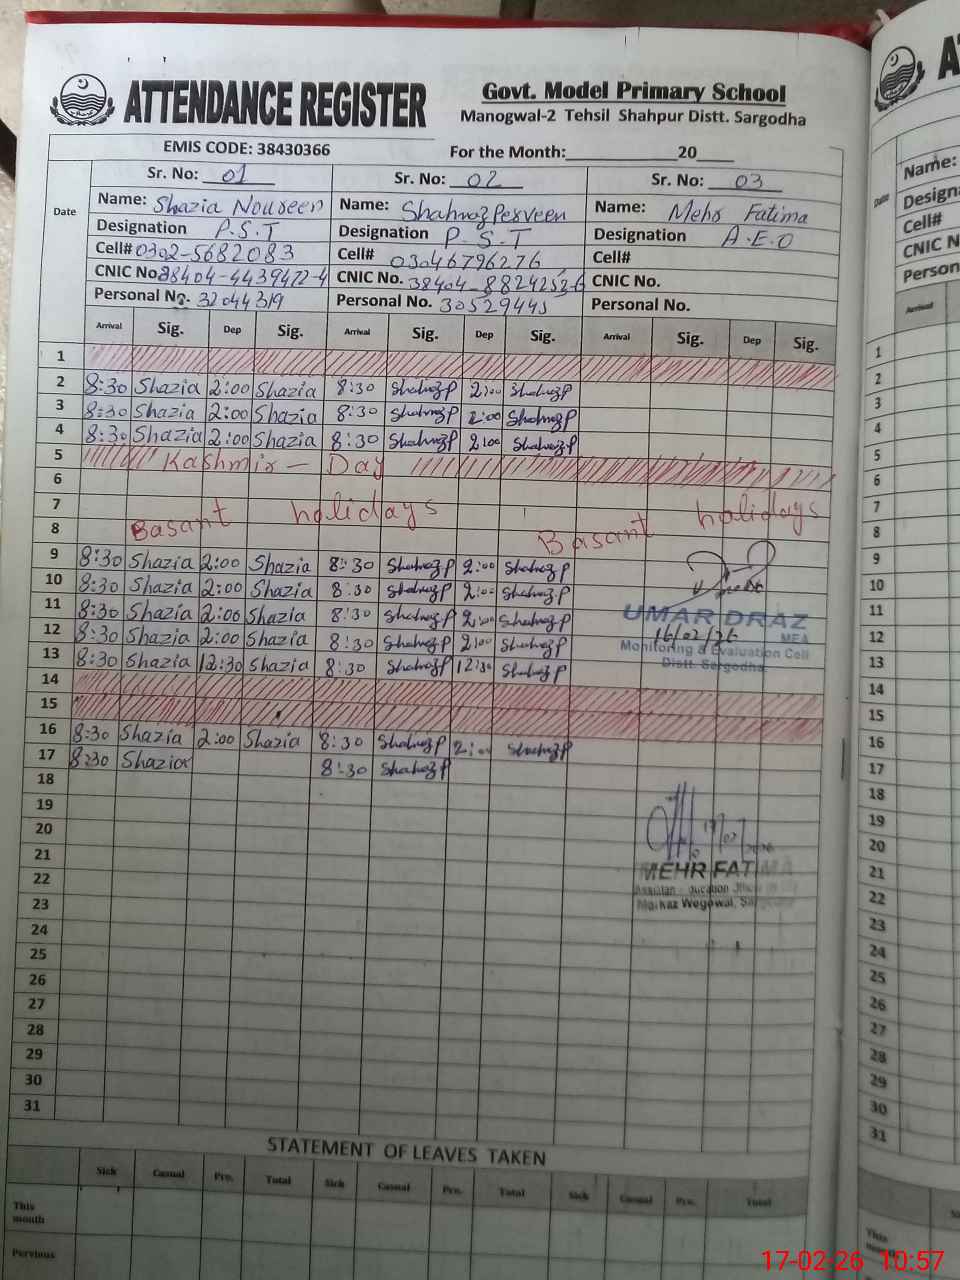 ATTENDANCE REGISTER
Govt. Model Primary School
Manogwal-2 Tehsil Shahpur Distt. Sargodha
EMIS CODE: 38430366 For the Month:____________20____
Date Sr. No: 01 Sr. No: 02 Sr. No: 03
Name: Shazia Noureen Name: Shahnaz Perveen Name: Mehr Fatima
Designation P.S.T Designation P.S.T Designation A.E.O
Cell# 0302-5682083 Cell# 03046796276 Cell#
CNIC No. 38404-4439472-4 CNIC No. 38404-8824252-6 CNIC No.
Personal No. 32044319 Personal No. 30529445 Personal No.
Arrival Sig. Dep Sig. Arrival Sig. Dep Sig. Arrival Sig. Dep Sig.
1
2 8:30 Shazia 2:00 Shazia 8:30 ShahnazP 2:00 ShahnazP
3 8:30 Shazia 2:00 Shazia 8:30 ShahnazP 2:00 ShahnazP
4 8:30 Shazia 2:00 Shazia 8:30 ShahnazP 2:00 ShahnazP
5 Kashmir - Day
6
7 Basant holidays Basant holidays
8
9 8:30 Shazia 2:00 Shazia 8:30 ShahnazP 2:00 ShahnazP
10 8:30 Shazia 2:00 Shazia 8:30 ShahnazP 2:00 ShahnazP
11 8:30 Shazia 2:00 Shazia 8:30 ShahnazP 2:00 ShahnazP
12 8:30 Shazia 2:00 Shazia 8:30 ShahnazP 2:00 ShahnazP
13 8:30 Shazia 12:30 Shazia 8:30 ShahnazP 12:30 ShahnazP
UMAR DRAZ
MEA
16/02/26
Monitoring & Evaluation Cell
Distt. Sargodha.
14
15
16 8:30 Shazia 2:00 Shazia 8:30 ShahnazP 2:00 ShahnazP
17 8:30 Shazia 8:30 ShahnazP
18
19
20 17/02/2026
21
22 MEHR FATIMA
23 Markaz Wegowal, Sargodha
24
25
26
27
28
29
30
31
STATEMENT OF LEAVES TAKEN
Sick Casual Prv. Total Sick Casual Prv. Total Sick Casual Prv. Total
This month
Pervious
A
Name:
Date
Designa
Cell#
CNIC N
Person
Arrival
1
2
3
4
5
6
7
8
9
10
11
12
13
14
15
16
17
18
19
20
21
22
23
24
25
26
27
28
29
30
31
This
17-02-26 10:57